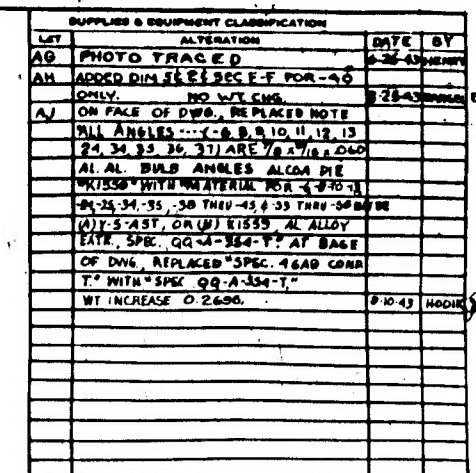 SUPPLIES & EQUIPMENT CLASSIFICATION
LET ALTERATION DATE BY
AG PHOTO TRACED HENRY
AH ADDED DIM SEC F-F FOR -40
ONLY. NO WT. CHG.
AJ ON FACE OF DWG., REPLACED NOTE
ALL ANGLES --- (-6, 8, 9, 10, 11, 12, 13
24, 34, 35, 36, 37) ARE 7/8 x 7/16 x .060
AL. AL. BULB ANGLES ALCOA DIE
"K1550" WITH "MATERIAL FOR
THRU -45, & 53 THRU
OR (B) K1559, AL ALLOY
EXTR., SPEC. QQ-A-354-T." AT BASE
OF DWG., REPLACED "SPEC. 46A9 COND
T." WITH "SPEC QQ-A-354-T."
WT INCREASE 0.2690. 8-10-43